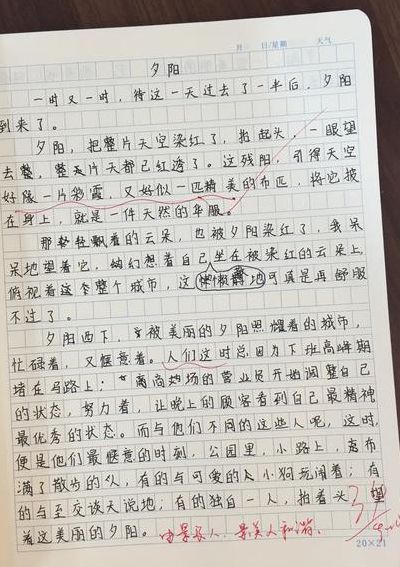 月 日/星期 天气
夕阳
一时又一时，待这一天过去了一半后，夕阳
到来了。
夕阳，把整片天空染红了，抬起头，一眼望
去整，整片天都已红透了。这残阳，引得天空
好像一片彩霞，又好似一匹精美的布匹，将它披
在身上，就是一件天然的华服。
那轻轻飘着的云朵，也被夕阳染红了，我呆
呆地望着它，幻想着自己坐在被染红的云朵上，
俯视着这整个城市，这 地可真是再舒服
不过了。
夕阳西下，被美丽的夕阳照耀着的城市，
忙碌着，又惬意着。人们这时总因为下班高峰期
堵在马路上；商场的营业员开始调整自己
的状态，努力着，让晚上的顾客看到自己最精神
最优秀的状态。而与他们不同的这些人呢，这时，
便是他们最惬意的时刻，公园里，小路上，布
满了散步的人，有的与可爱的小狗玩闹着；有
的与至交谈天说地；有的独自一人，抬着头望
着这美丽的夕阳。由景及人，景美人和谐。
20×21